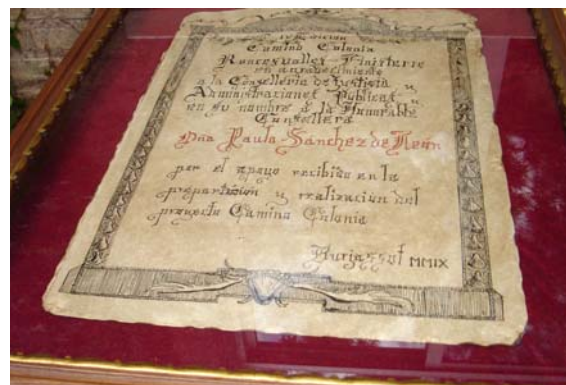 IV Edición
Camino Colonia
Roncesvalles Finisterre
en agradecimiento
a la Conselleria de Justicia y
Administraciones Públicas y
en su nombre a la Honorable
Consellera
Dña Paula Sánchez de León
por el apoyo recibido en la
preparación y realización del
proyecto Camino Colonia
Burjassot MMIX